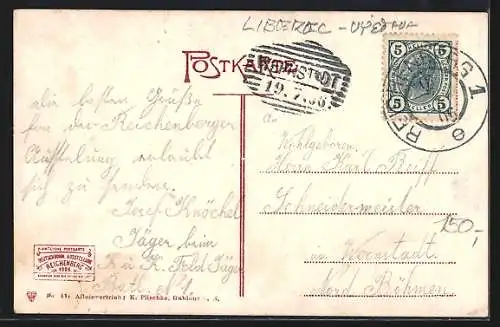 LIBEREC - VÝSTAVA
POSTKARTE
19.7.06
5 5
5 5
RE G 1
die besten Grüße
von der Reichenberger
Ausstellung erlaubt
sich zu senden.
Josef Knöchel
Jäger beim
K. u. K. Feld Jäger
Batl.
Wohlgeboren
Herrn Karl
Schneidermeister
in
Nord Böhmen
150,-
DEUTSCHBÖHM. AUSSTELLUNG
REICHENBERG
1906
No. Alleinvertrieb: K. Püschke, Gablonz a. N.